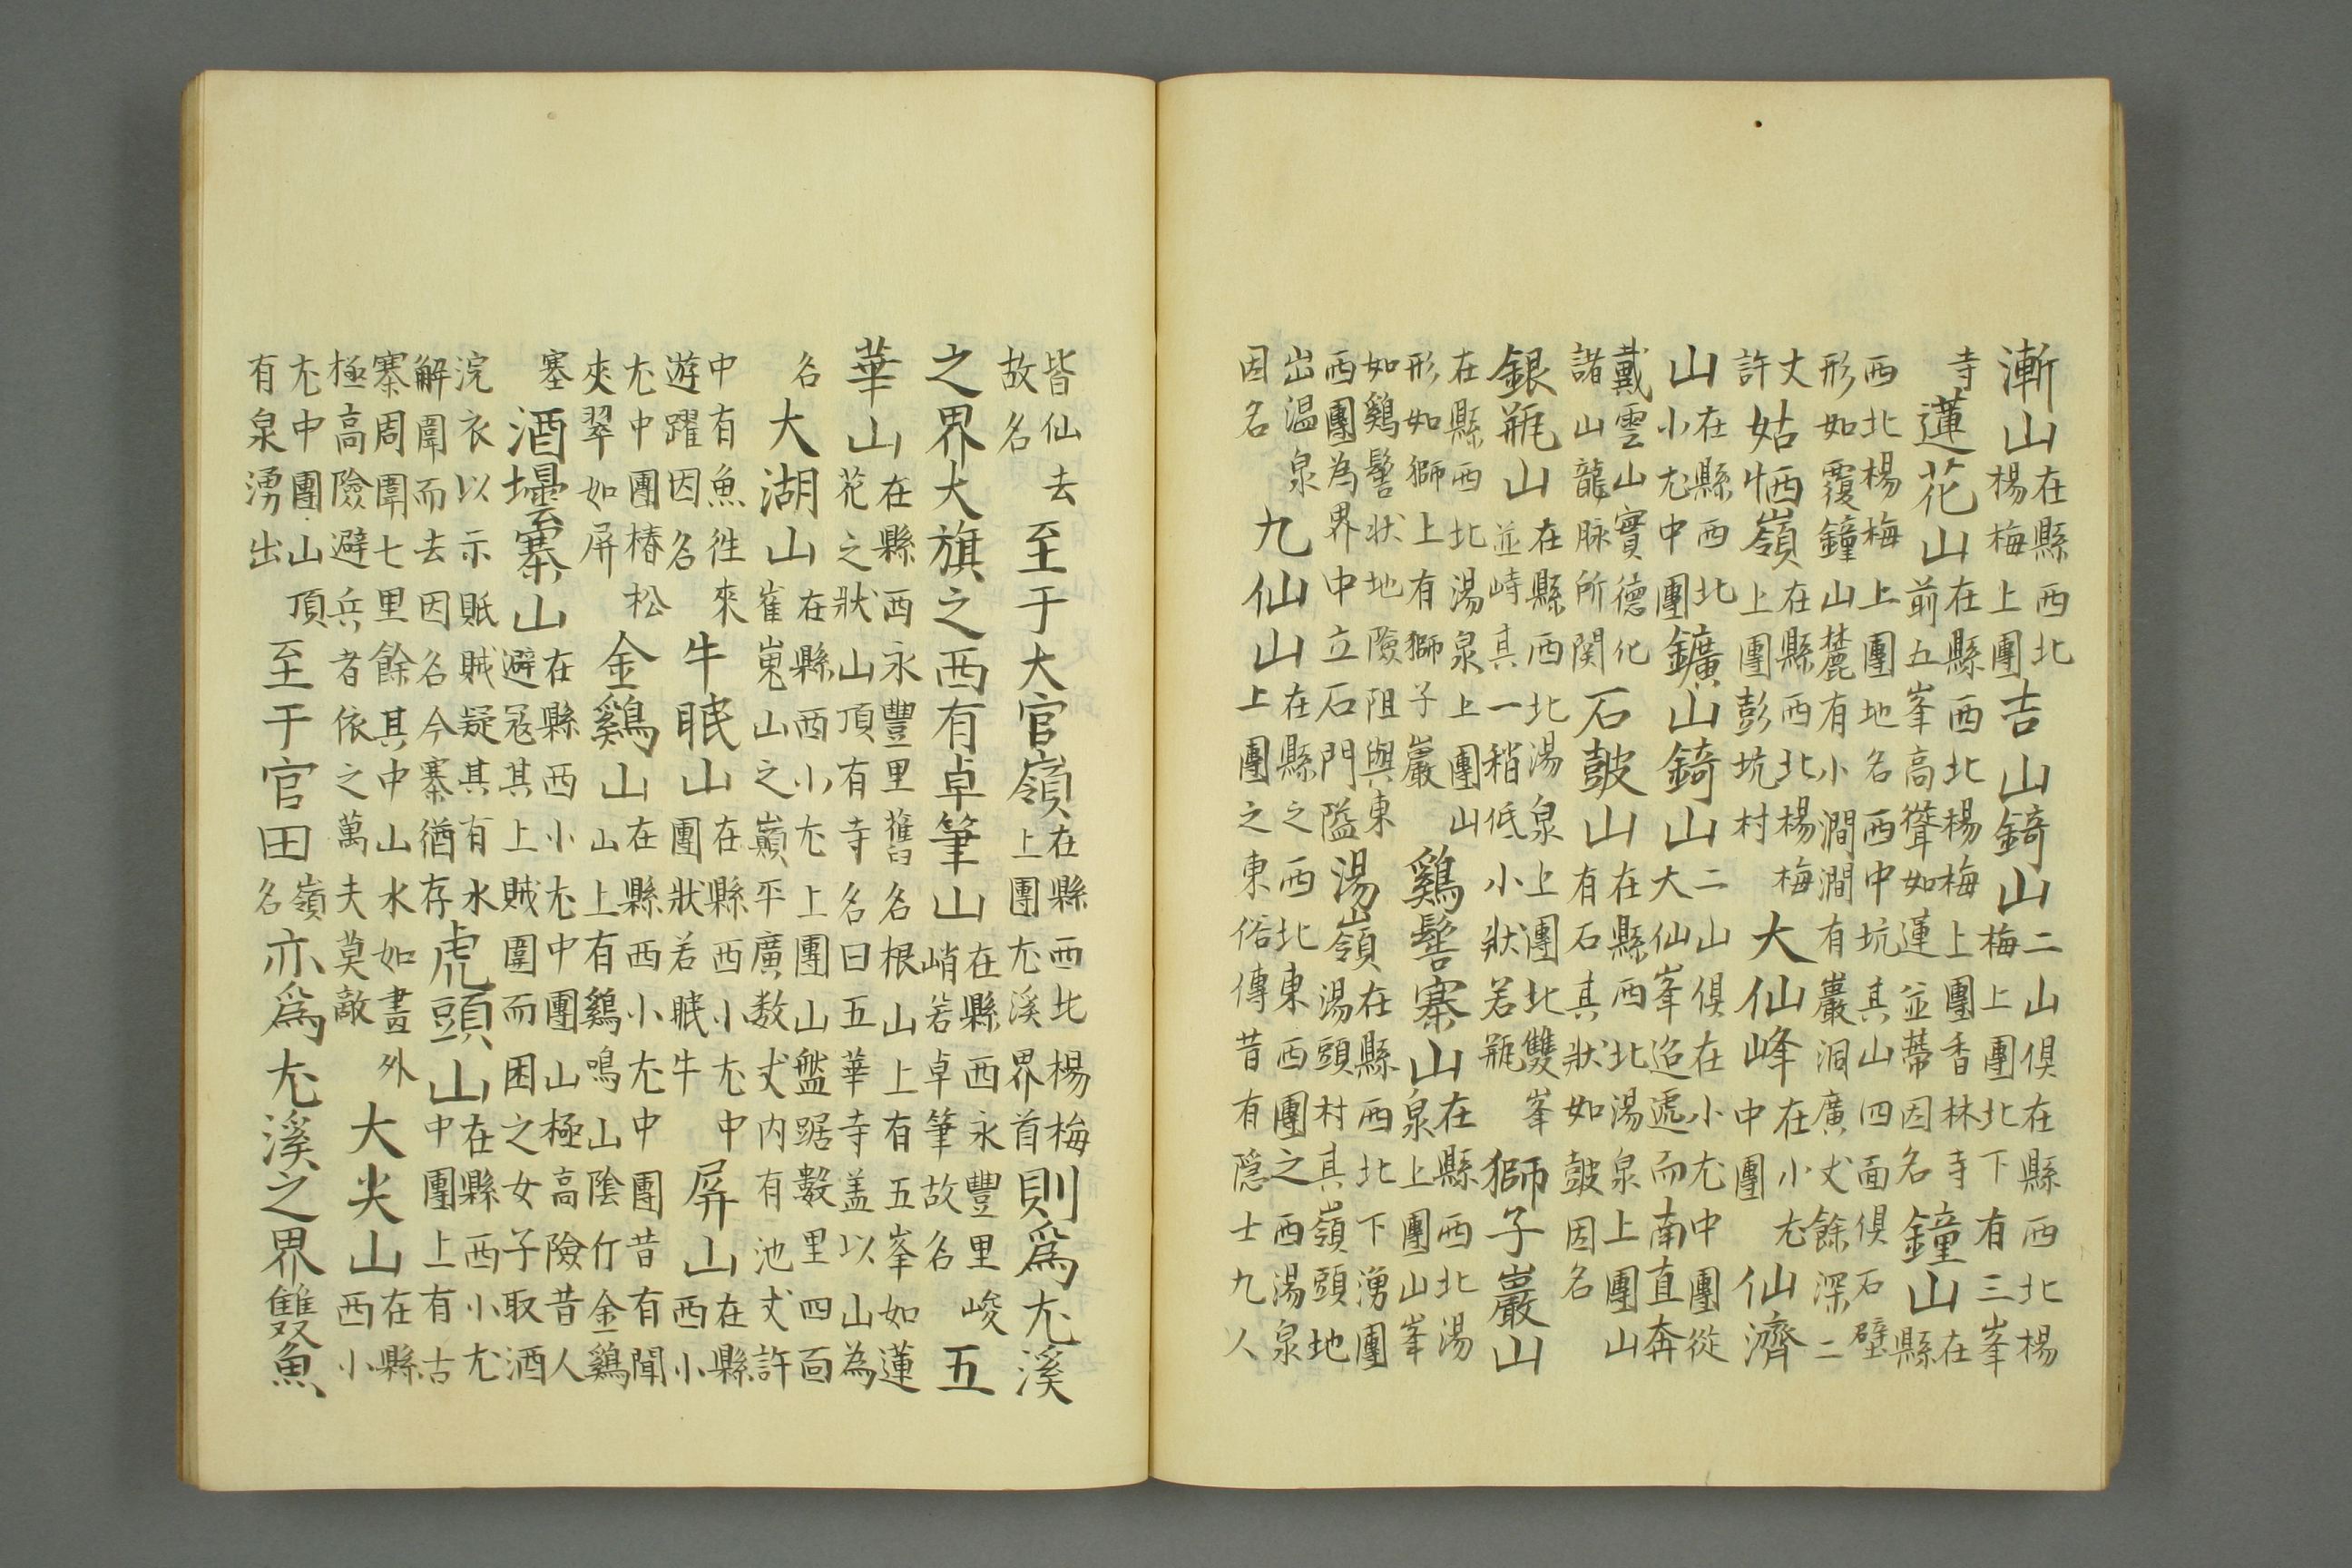 漸山在縣西北楊梅上團吉山錡山二山俱在縣西北楊梅上團北下有三峯
寺蓮花山在縣西北楊梅上團香林寺前五峯高聳如蓮並蔕因名鐘山在縣
西北楊梅上團地名西中坑其山四面俱石壁形如覆鐘山麓有小澗澗有巖洞廣丈餘深二
丈許姑栖嶺在縣西北楊梅上團彭坑村大仙峰在小尤中團仙濟
山在縣西北小尤中團鑛山錡山二山俱在小尤中團從大仙峯迤遞而南直奔
戴雲山實德化諸山龍脉所関石鼓山在縣西北湯泉上團山有石其狀如鼓因名
銀瓶山在縣西北湯泉上團北雙峯並峙其一稍低小狀若瓶獅子巖山
在縣西北湯泉上團山形如獅上有獅子巖鷄髻寨山在縣西北湯泉上團山峯
如鷄髻狀地險阻與東西團為界中立石門隘湯嶺在縣西北下湧團湯頭村其嶺頭地
出温泉因名九仙山在縣之西北東西團之西湯泉上團之東俗傳昔有隱士九人
皆仙去故名至于大官嶺在縣西北楊梅上團尤溪界首則爲尤溪
之界大旗之西有卓筆山在縣西永豐里峻峭若卓筆故名五
華山在縣西永豐里舊名根山上有五峯如蓮花之狀山頂有寺名曰五華寺盖以山為
名大湖山在縣西小尤上團山盤踞數里四面崔嵬山之巔平廣数丈内有池丈許
中有魚徃來遊躍因名牛眠山在縣西小尤中團狀若眠牛屏山在縣西小
尤中團椿松夾翠如屏金鷄山在縣西小尤中團昔有聞山上有鷄鳴山陰仃金鷄
塞酒壜寨山在縣西小尤中團山極高險昔人避寇其上賊圍而困之女子取酒
浣衣以示貾賊疑其有水解圍而去因名今寨猶存虎頭山在縣西小尤中團上有古
寨周圍七里餘其中山水如畫外極高險避兵者依之萬夫莫敵大尖山在縣西小
尤中團山頂有泉湧出至于官田嶺名亦爲尤溪之界雙魚